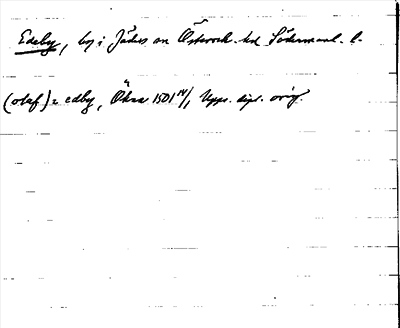 Edeby, by i Jäders sn Österrek. hd Södermanl. l.
(olaf) i edby, Ökna 1501 14/1, Upps. dipl. orig.